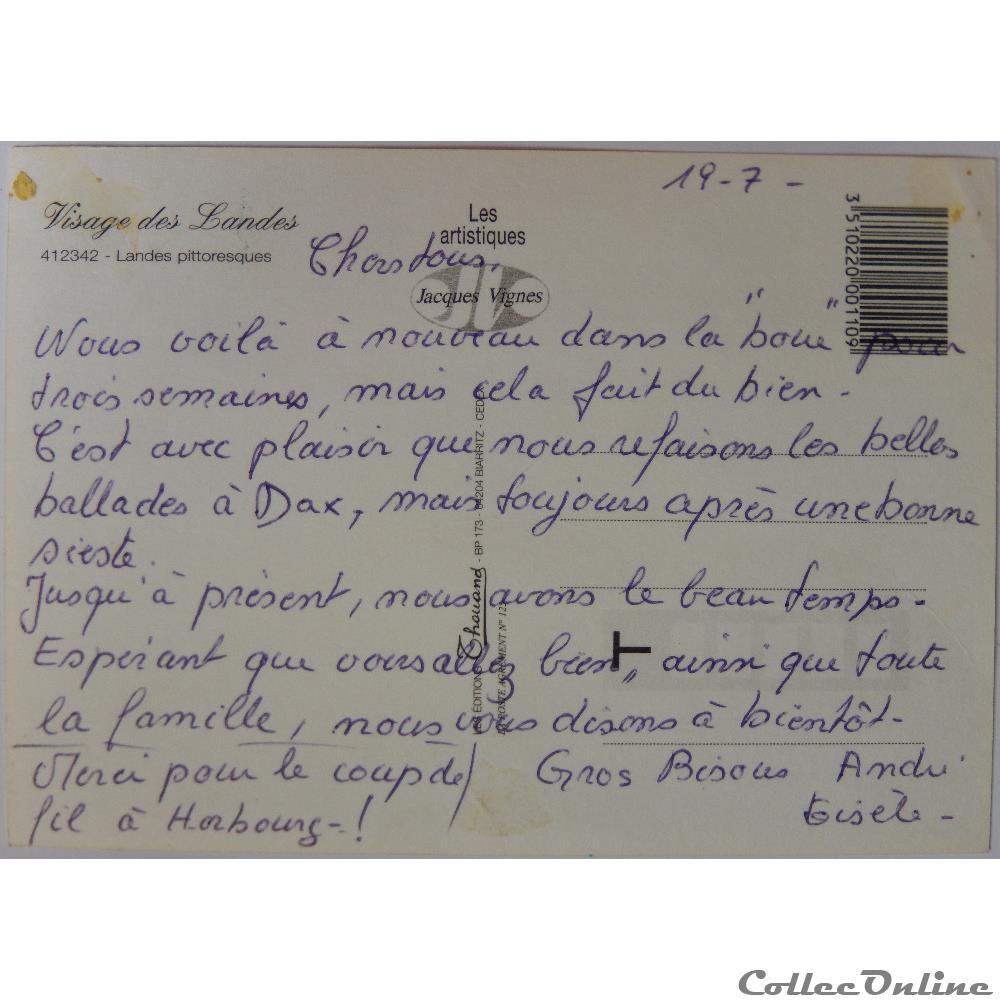 19-7-
Visage des Landes
412342 - Landes pittoresques
Les
artistiques
Jacques Vignes
3 510220 001109
Chers tous,
Nous voilà à nouveau dans la "boue" pour
trois semaines, mais cela fait du bien.
C'est avec plaisir que nous refaisons les belles
ballades à Dax, mais toujours après une bonne
sieste.
Jusqu'à présent, nous avons le beau temps.
Espérant que vous allez bien, ainsi que toute
la famille, nous vous disons à bientôt-
Merci pour le coup de
fil à Horbourg-!
Gros Bisous André
Gisèle-
LES EDITIONS Thouand - BP 173 - 64204 BIARRITZ - CEDEX
LA POSTE AGREMENT N° 123
T
CollecOnline